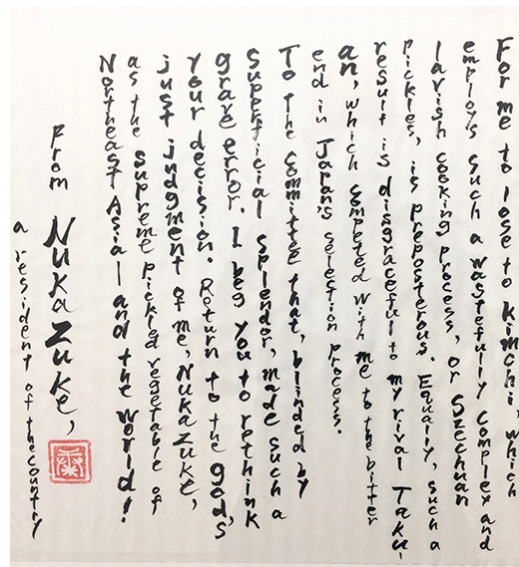 For me to lose to kimchi, which
employs such a wastefully complex and
lavish cooking process, or Szechuan
pickles, is preposterous. Equally, such a
result is disgraceful to my rival Taku-
an, which competed with me to the bitter
end in Japan's selection process.
To the committee that, blinded by
superficial splendor, made such a
grave error. I beg you to rethink
your decision. Return to the gods'
just judgment of me, Nukazuke,
as the supreme pickled vegetable of
Northeast Asia and the world!
From Nukazuke,
a resident of the county